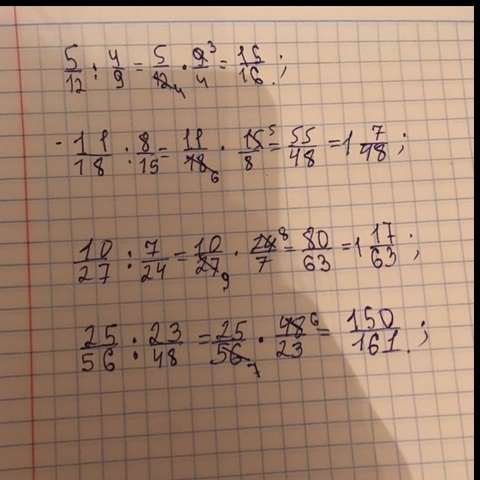 5/12 : 4/9 = 5/12 4 · 9 3/4 = 15/16;
11/18 : 8/15 = 11/18 6 · 15 5/8 = 55/48 = 1 7/48;
10/27 : 7/24 = 10/27 9 · 24 8/7 = 80/63 = 1 17/63;
25/56 : 23/48 = 25/56 7 · 48 6/23 = 150/161;